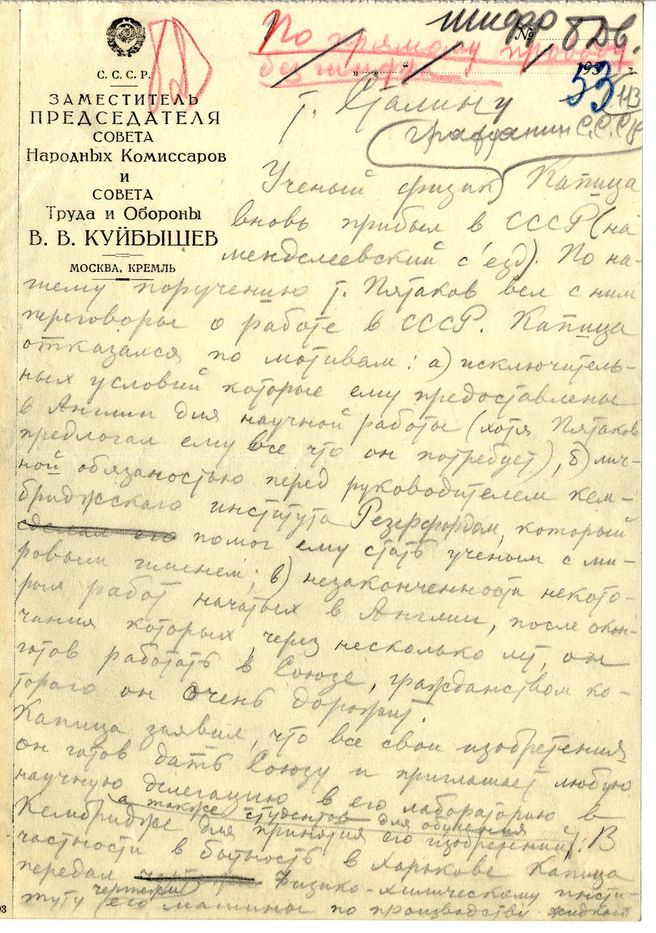 шифр
№ 8 Дв.
По прямому проводу
без шифра
С. С. С. Р.
193
53
113
ЗАМЕСТИТЕЛЬ
ПРЕДСЕДАТЕЛЯ
СОВЕТА
Народных Комиссаров
И
СОВЕТА
Труда и Обороны
В. В. КУЙБЫШЕВ
МОСКВА, КРЕМЛЬ
т. Сталину
гражданин С.С.С.Р
Ученый физик Капица
вновь прибыл в СССР (на
менделеевский с'езд). По на-
шему поручению т. Пятаков вел с ним
переговоры о работе в СССР. Капица
отказался по мотивам: а) исключитель-
ных условий которые ему предоставлены
в Англии для научной работы (хотя Пятаков
предлогал ему все что он потребует), б) лич-
ной обязаностью перед руководителем кем-
бриджскаго института Резерфордом, который
сделал его помог ему стать ученым с ми-
ровым именем; в) незаконченности некото-
рых работ начатых в Англии, после окон-
чания которых, через несколько лет, он
готов работать в Союзе, гражданством ко-
тораго он очень дорожит.
Капица заявил, что все свои изобретения
он готов дать Союзу и приглашает любую
научную делегацию в его лабораторию в
(а также студентов для обучения
Кембридже для принятия его изобретений). В
частности в бытность в Харькове Капица
передал Физико-химическому инсти-
чертежи
туту его машины по производству жидкого
93